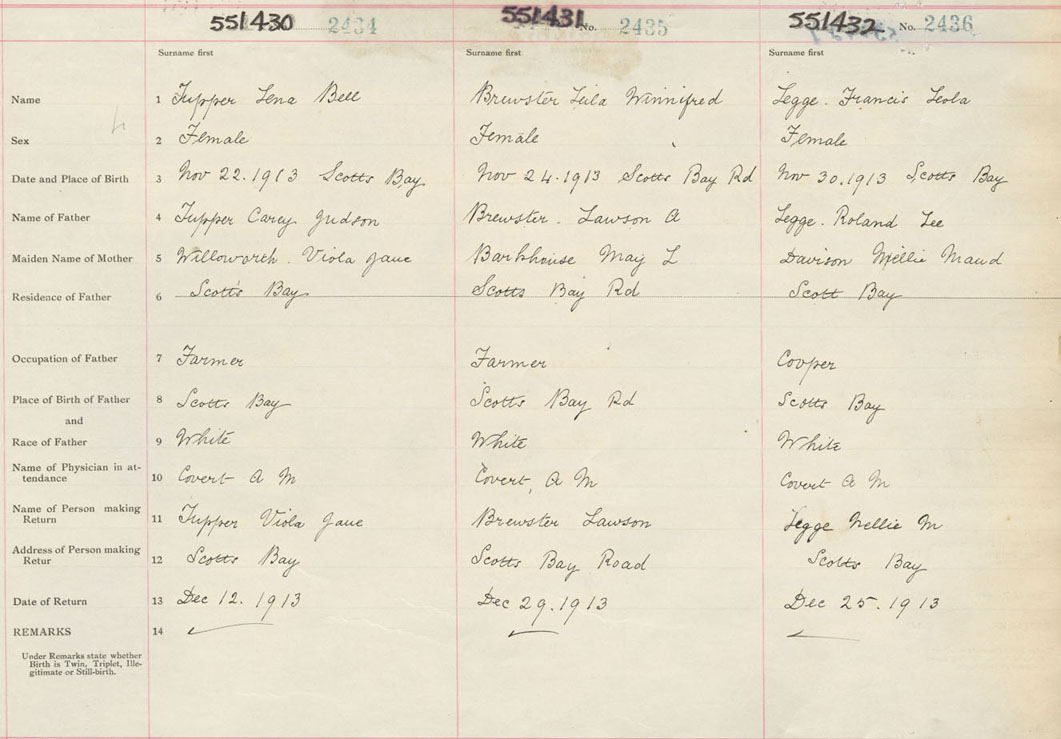 551430 2434 551431 No. 2435 551432 No. 2436
Surname first Surname first Surname first
Name 1 Tupper Lena Bell Brewster Leila Winnifred Legge. Francis Leola
Sex 2 Female Female Female
Date and Place of Birth 3 Nov 22.1913 Scotts Bay Nov 24.1913 Scotts Bay Rd Nov 30.1913 Scotts Bay
Name of Father 4 Tupper Carey Judson Brewster. Lawson A Legge. Roland Lee
Maiden Name of Mother 5 Willoworth. Viola Jane Barkhouse May L Davison Nellie Maud
Residence of Father 6 Scotts Bay Scotts Bay Rd Scott Bay
Occupation of Father 7 Farmer Farmer Cooper
Place of Birth of Father 8 Scotts Bay Scotts Bay Rd Scotts Bay
and
Race of Father 9 White White White
Name of Physician in at-
tendance 10 Covert A M Covert, A M Covert A M
Name of Person making
Return 11 Tupper Viola Jane Brewster Lawson Legge Nellie M
Address of Person making
Retur 12 Scotts Bay Scotts Bay Road Scotts Bay
Date of Return 13 Dec 12. 1913 Dec 29.1913 Dec 25.1913
REMARKS 14
Under Remarks state whether
Birth is Twin, Triplet, Ille-
gitimate or Still-birth.